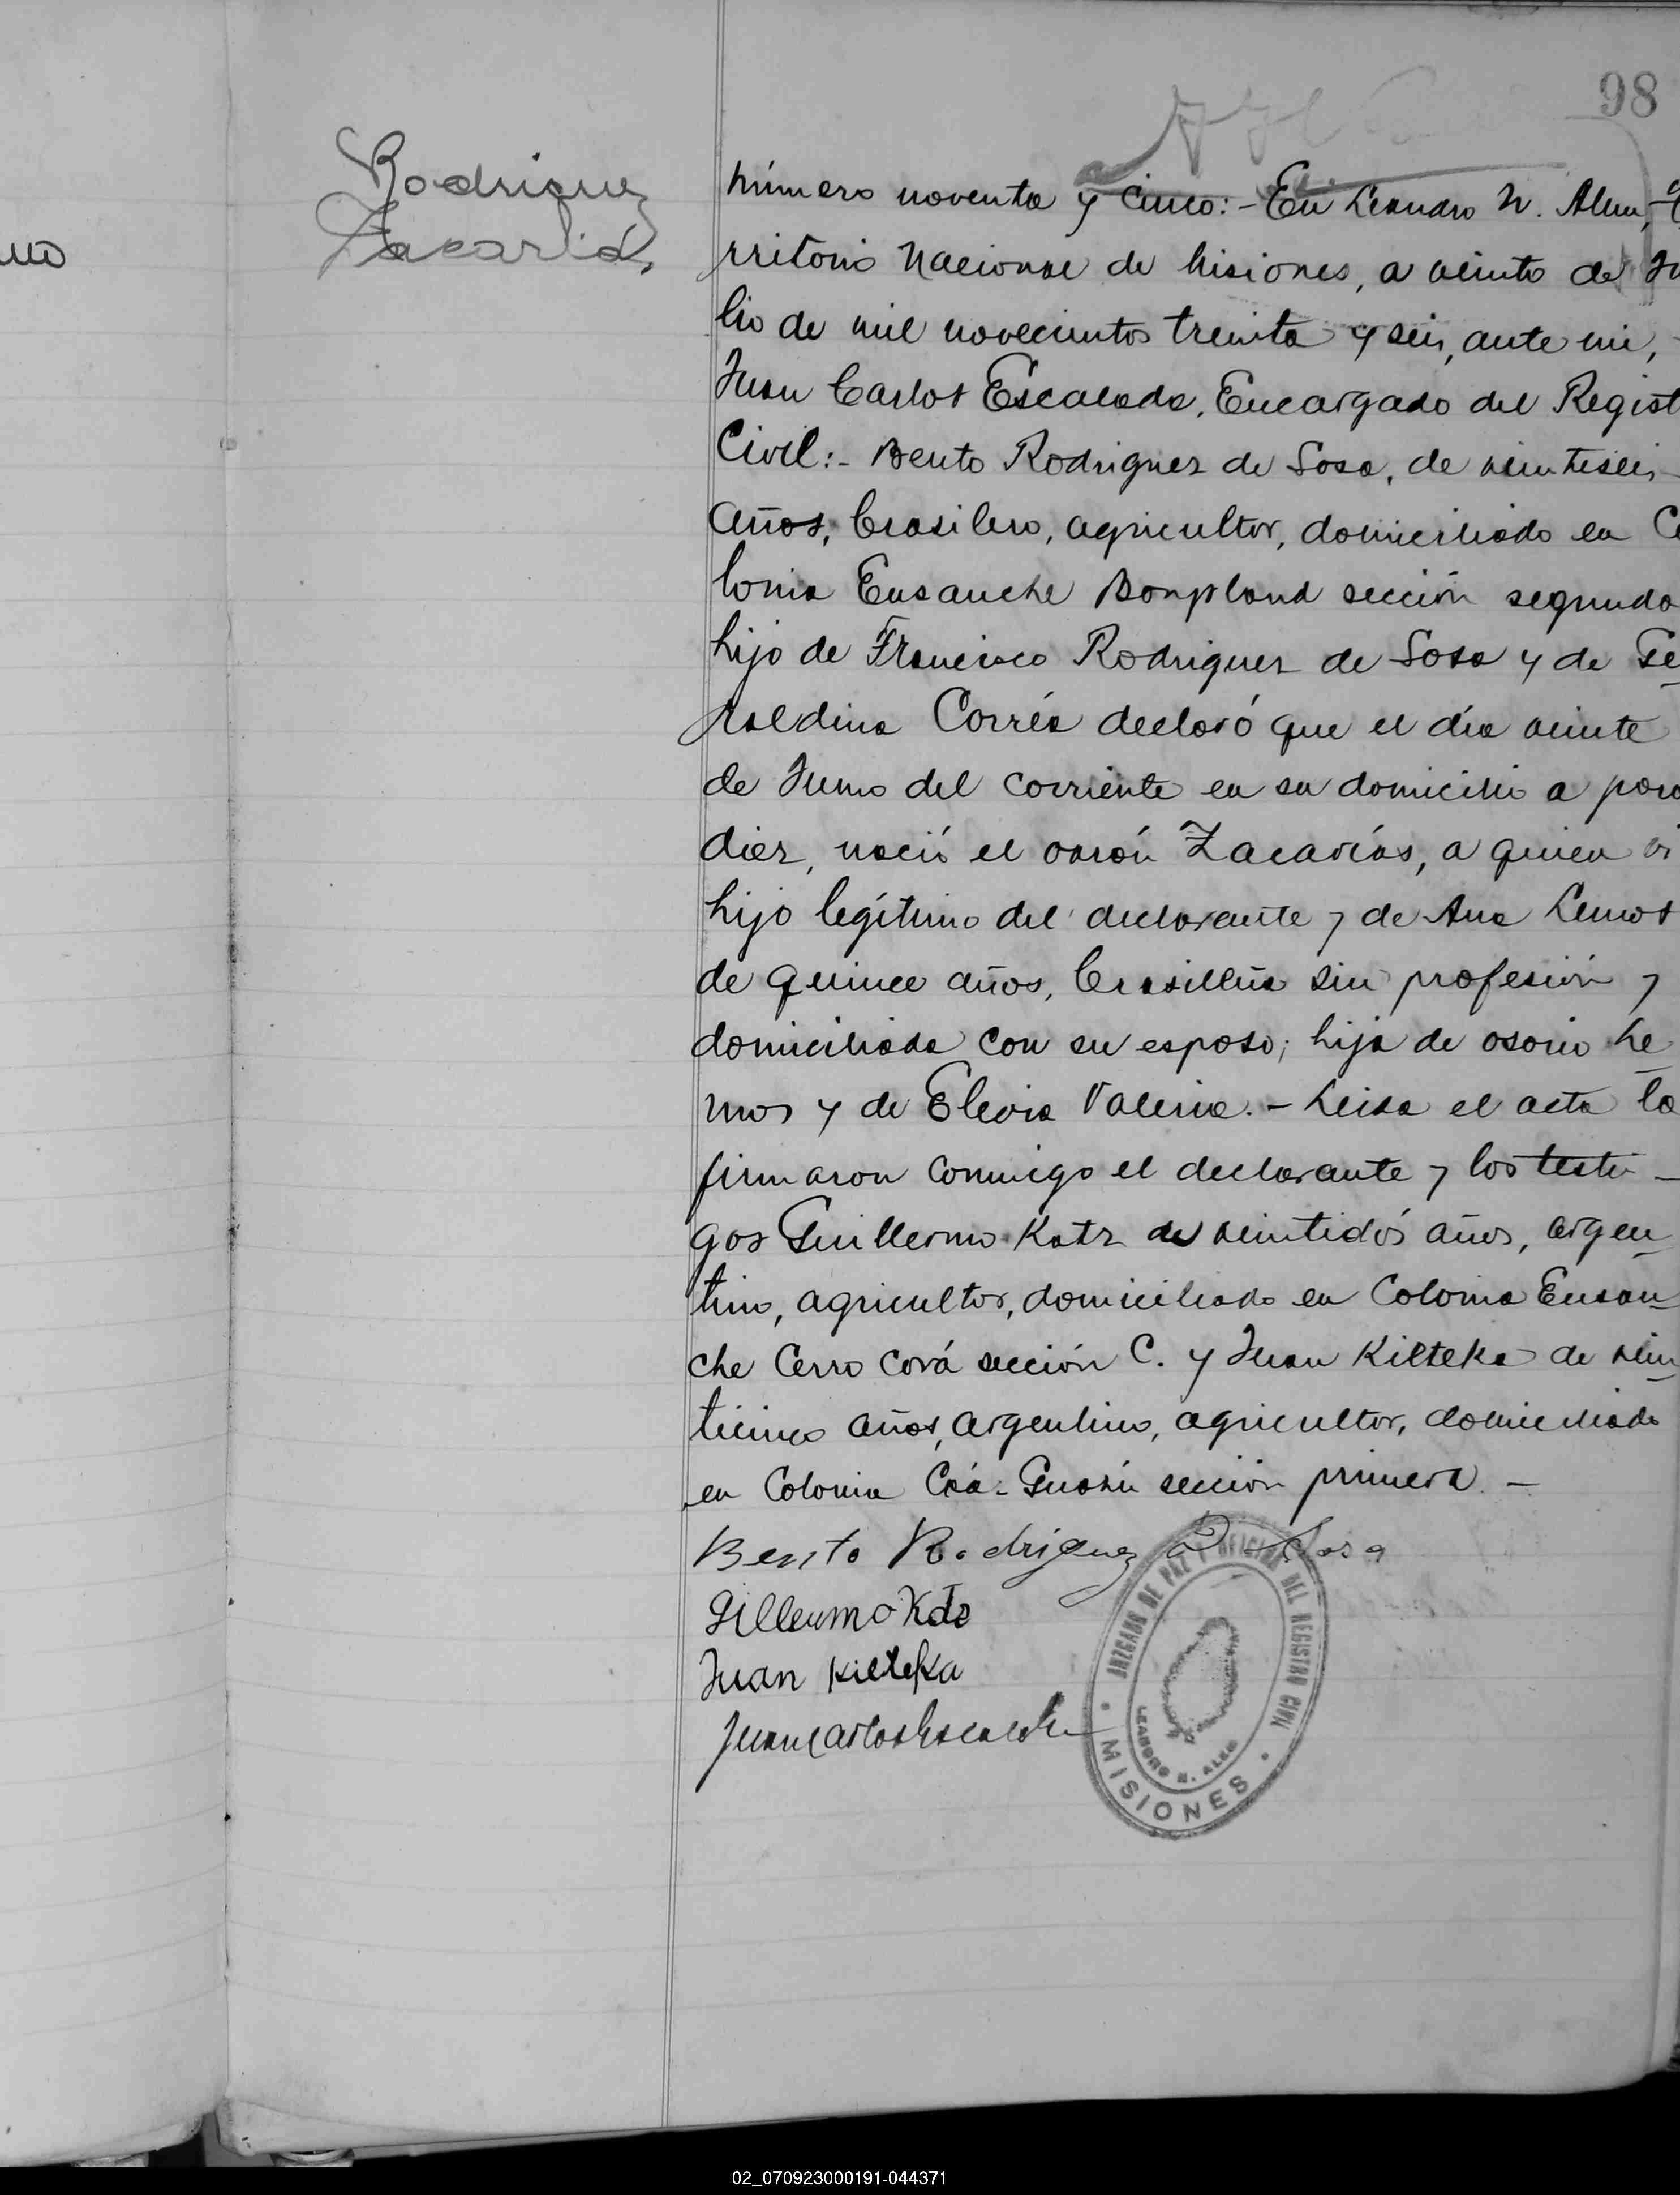 98
Rodriguez
Zacarías
uno
Número noventa y cinco:- En Leandro N. Alem, Te
rritorio Nacional de Misiones, a veinte de Ju
lio de mil novecientos treinta y seis, ante mi,
Juan Carlos Escalada, Encargado del Regist
Civil:- Bento Rodriguez de Sosa, de veintiseis
años, brasilero, agricultor, domiciliado en Co
lonia Ensanche Bonpland sección segunda
hijo de Francisco Rodriguez de Sosa y de Ge
raldina Corréa declaró que el día veinte
de Junio del corriente en su domicilio a
diez, nació el varón Zacarías, a quien vi
hijo legítimo del declarante y de Ana Lemos
de quince años, brasileña sin profesión y
domiciliada con su esposo; hija de osorio Le
mos y de Elevia Valeria.- Leida el acta la
firmaron conmigo el declarante y los testi-
gos Guillermo Katz de veintidós años, argen
tino, agricultor, domiciliado en Colonia Ensan
che Cerro Corá sección C. y Juan Kilteka de vein
ticinco años, argentino, agricultor, domiciliado
en Colonia Caá-Guazú sección primera -
Bento Rodriguez D Sosa
Gillermo Katz
Juan Kilteka
Juan Carlos Escalada
JUZGADO DE PAZ Y OFICINA DEL REGISTRO CIVIL
LEANDRO N. ALEM
MISIONES
02_070923000191-044371